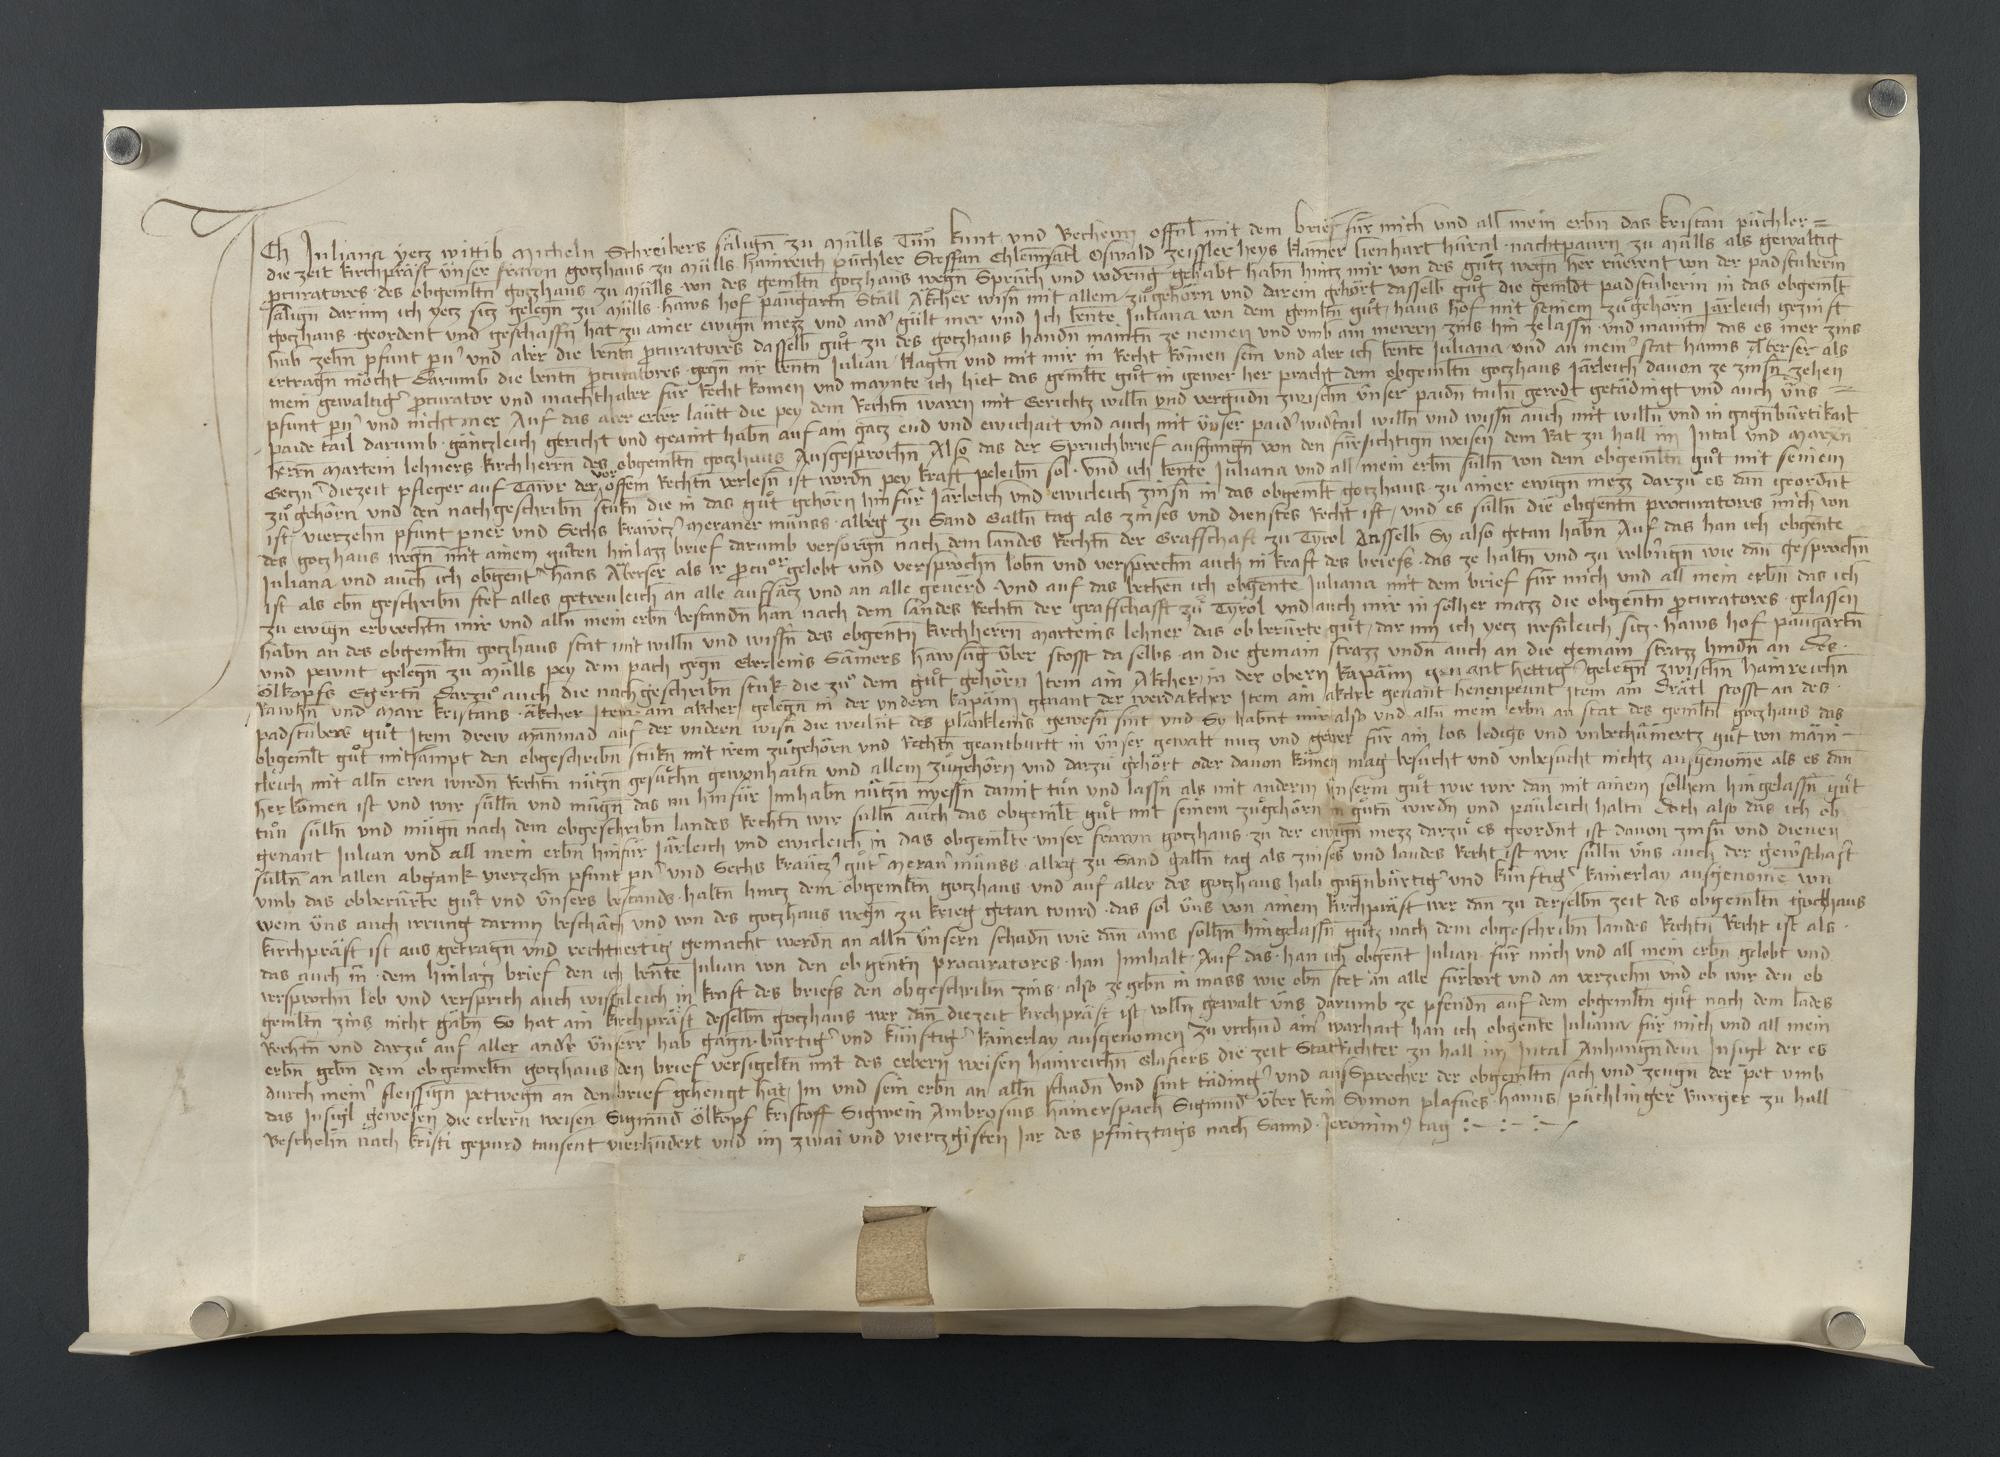 Ich Juliana yetz wittib Micheln Schreibers sälign zu Mülls Tuͦn kunt und Vechenn offnl mit dem brief für mich und all mein erbn das kristan püchler
die zeit kirchpräst Unser frawn gotzhaus zu Mülls hainreich püchler Steffan Chlemsatl Oswald Zeissler heys klamer lienhart hürnl nachtpaurn zu Mülls als gewaltig
procuratores des obgemltn gotzhaus zu Mülls von des gemltn gotzhaus wegn Sprüch und vodrung gehabt habn hintz mir von des guͦtz wegn her rüerent von der padstuberin
sälign dar inn ich yetz sitz gelegn zu Mülls haws hof paungartn Stall Äkcher wisn mit allem zuͦgehörn und darein gehört dasselb guͦt die gemldt padstuberin in das obgemlt
gotzhaus geordent und geschaffn hat zu ainer ewign mezz und andr gült mer und Ich bente Juliana von dem gemltn guͦt haus hof mit seinem zuͦgehörn järleich gezinst
hab zehn pfunt pnr und aber die bentn procuratores dasselb guͦt zu des gotzhaus handn maintn ze nemen und umb ain merern zins hin zelassn und maintn das es mer zins
ertragn möcht Darumb die bentn procuratores gegn mir bentn Julian klagtn und mit mir in Recht komen sein und aber ich bente Juliana und an meinr stat hanns Aͤlterser als
mein gewaltigr procurator und machthaber für Recht komen und maynte ich hiet das gemlte guͦt in gewer her pracht dem obgemltn gotzhaus järleich davon ze zinsn zehen
pfunt pnr und nicht mer Auf das aber erber läutt die pey dem Rechtn waren mit Gerichtz willn und vergundn zwischn Unser paidn tailn geredt getädingt und auch Uns
paide tail darumb gäntzleich gericht und geaint habn auf ain gatz end und ewichait und auch mit Unser paidr widrtail willn und wissn auch mit willn und in gagnbürtikait
herrn Martein lehners kirchherrn des obgemltn gotzhaus Ausgesprochn Also das der Spruchbrief ausgangn von den fürsichtign weisen dem Rat zu hall im Intal und Marxn
Getznr diezeit pfleger auf Tawr der vor offem Rechtn verlesn ist wordn pey kraft peleibn sol Und ich bente Juliana und all mein erbn sülln von dem obgemltn guͦt mit seinem
zuͦgehörn und den nachgeschribn stukn die in das guͦt gehörn hinfür järleich und ewicleich zinsn in das obgemlt gotzhaus zu ainer ewign mezz darzuͦ es dan geordnt
ist vierzehn pfunt pner und Sechs krawtzr Meraner münss albeg zu Sand Galln tag als zinses und dienstes Recht ist und es sülln die obgentn procuratores mich von
des gotzhaus wegn mit ainem guͦten hinlazz brief darumb versorgn nach dem landes Rechtn der Graffschaft zu Tyrol dasselb Sy also getan habn Auf das han ich obgente
Juliana und auch ich obgentr hans Aͤlterser als ir procuor gelobt und versprochn lobn und versprechn auch in kraft des briefs das ze haltn und zu volbringn wie dan gesprochn
ist als obn geschribn stet alles getreuleich an alle aufsätz und an alle geuärd Und auf das bechen ich obgente Juliana mit dem brief für mich und all mein erbn das ich
zu ewign erbrechtn mir und alln mein erbn bestandn han nach dem landes Rechtn der graffschafft zuͦ Tyrol und auch mir in solher mazz die obgentn procuratores gelassen
habn an des obgemltn gotzhaus stat mit willn und wissn des obgentn kirchherrn Marteins lehner das obberürte guͦt dar inn ich yetz wesnleich sitz haws hof paungartn
und pewnt gelegn zu Mülls pey dem pach gegn Eberleins Sämers hawsung über stosst da selbs an die gemain strazz undn auch an die gemain strazz hindn an des
Ölkopfs Egertn Darzuͦ auch die nachgeschribn stuk die zuͦ dem guͦt gehörn Item ain Akcher in der obern kapäim genant hettigr gelegn zwischn hainreichn
Rawhn und Mair kristans äkcher Item ain akcher gelegn in der undern kapäim genant der werdakcher Item ain akcher genant henenpeunt Item ain Drätl stosst an des
padstubers guͦt Item drew Manmad auf der undern wisn die weilnt des planklems gewesn sint und Sy habnt mir also und alln mein erbn an stat des gemltn gotzhaus das
obgemlt guͦt mitsampt den obgeschribn stukn mit irem zuͦgehörn und Rechtn geantburtt in Unser gewalt nutz und gewer für ain los ledigs und unbechümertz guͦt von män
kleich mit alln eren wirdn Rechtn nützn gesuchn gewonhaitn und allem zuͦgehörn und darzuͦ gehört oder davon kömen mag besucht und unbesucht nichtz ausgenome als es dan
herkomen ist und wir sülln und mügn das nu hinfür Innhabn nützn nyessn damit tuͦn und lassn als mit anderm Unserm guͦt wie wir dan mit ainem solhem hingelassn guͦt
tuͦn sülln und mügn nach dem obgeschribn landes Rechtn wir sülln auch das obgemlt guͦt mit seinem zuͦgehörn in guͦtn wirdn und päuleich haltn Doch also das ich ob
genant Julian und all mein erbn hinfür järleich und ewicleich in das obgemlte unser frawn gotzhaus zu der ewign mezz darzuͦ es geordnt ist davon zinsn und dienen
sülln an allen abgank vierzehn pfunt pnr und Sechs kräutzr guͦtr Meranr münss albeg zu Sand Galln tag als zinses und landes Recht ist wir sülln Uns auch der gewrschaft
umb das obberürte guͦt und Unsers bestands haltn hintz dem obgemltn gotzhaus und auf aller des gotzhaus hab gagnbürtigr und künftigr kainerlay ausgenome von
wem Uns auch irrung darinn beschäch und von des gotzhaus wegn zu krieg getan wurd das sol Uns von ainem kirchpräst wer dan zu derselbn zeit des obgemltn gotzhaus
kirchpräst ist aus getragn und rechtuertig gemacht werdn an alln Unsern schadn wie dan ains solhn hingelassn guͦtz nach dem obgeschribn landes Rechtn Recht ist als
das auch in dem hinlazz brief den ich bente Julian von den obgentn procuratores han Innhalt Auf das han ich obgent Julian für mich und all mein erbn gelobt und
versprochn lob und versprich auch wissnleich in kraft des briefs den obgeschribn zins also ze gebn in mass wie obn stet an alle fürwort und an verziehn und ob wir den ob
gemltn zins nicht gäbn So hat ain kirchpräst desselbn gotzhaus wer dan diezeit kirchpräst ist volln gewalt Uns darumb ze pfendn auf dem obgemltn guͦt nach dem lades
Rechtn und darzuͦ auf aller andr Unserr hab gagnbürtigr und künftigr kainerlay ausgenomen Zu urchund ainr warhait han ich obgente Juliana für mich und all mein
erbn gebn dem obgemeltn gotzhaus den brief versigeltn mit des erbern weisen hainreichn Glafiers die zeit Statrichter zu hall im Intal Anhangndem Insigl der es
durch meinr fleissign petwegn an den brief gehengt hat Im und sein erbn an alln schadn Und sint tädingr und aussprecher der obgemltn sach und zeugn der pet umb
das Insigl gewesen die erbern weisen Sigmund Ölkopf kristoff Sigwein Ambrosius hainerspach Sigmund Über Rein Symon plafues hanns püchlinger burger zu hall
Beschehn nach kristi gepurd tausent vierhundert und im zwai und viertzgisten Jar des pfintztags nach Sannd Jeronimus tag